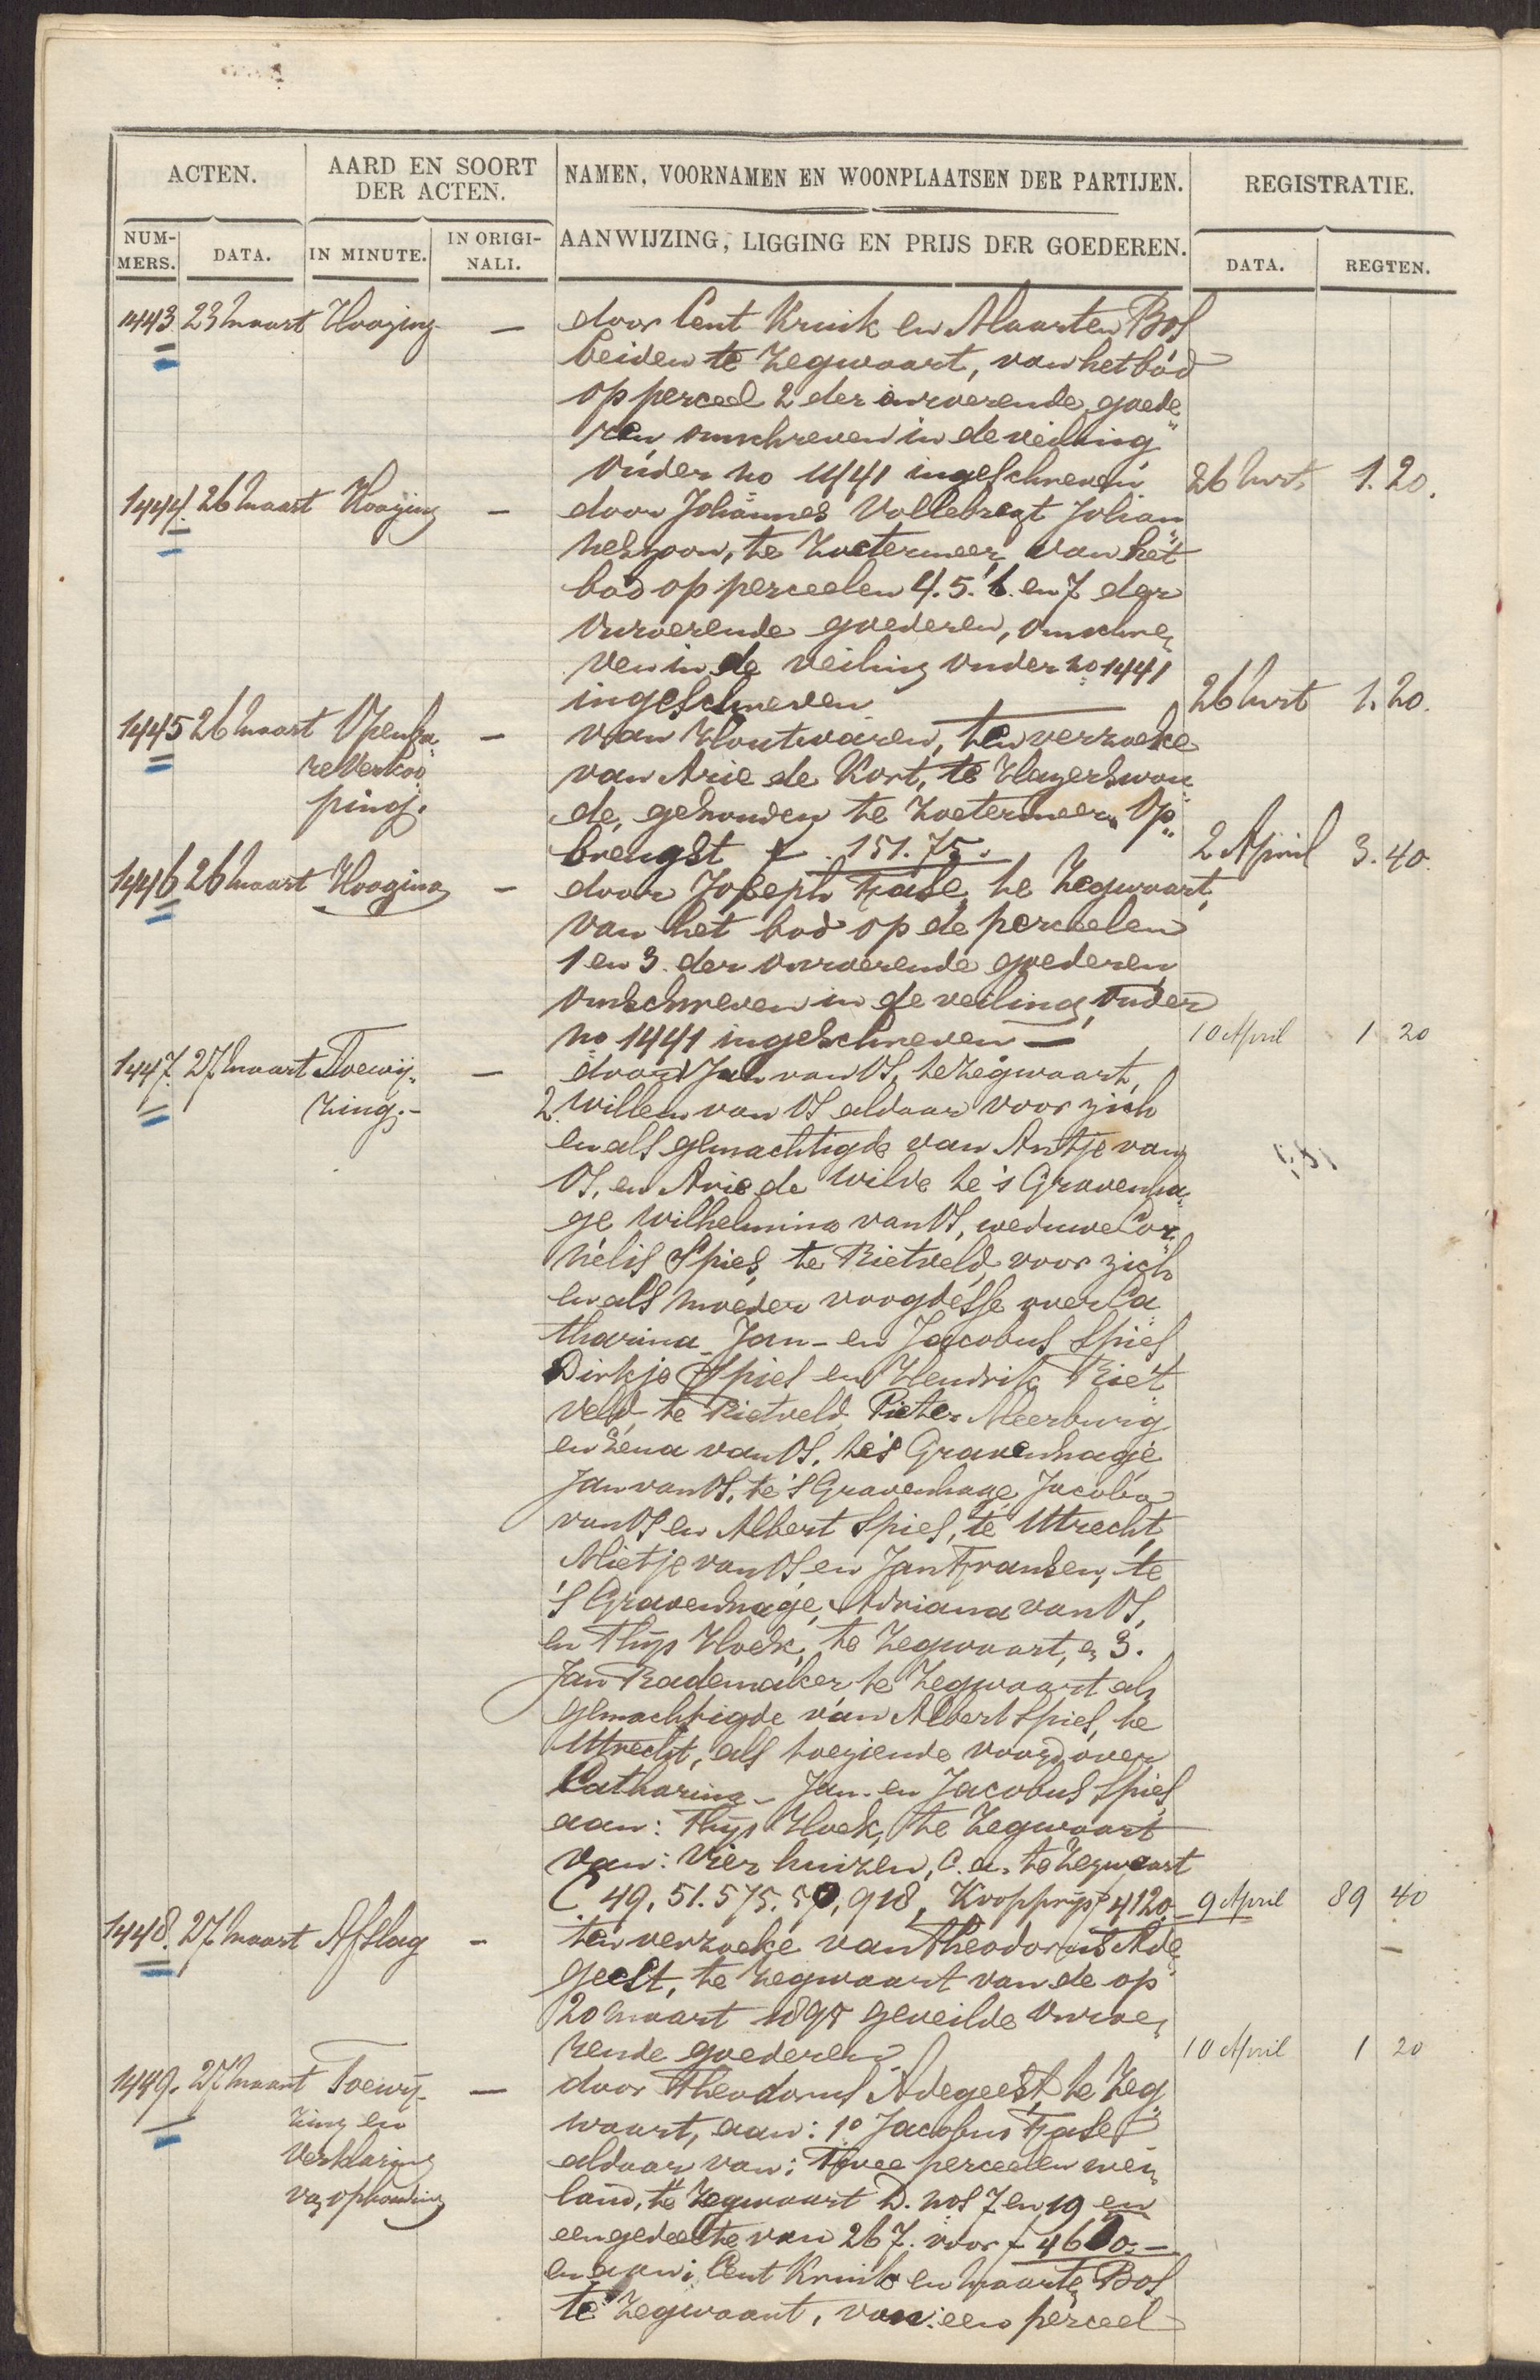 ACTEN.
AARD EN SOORT
DER ACTEN.
NAMEN, VOORNAMEN EN WOONPLAATSEN DER PARTIJEN.
REGISTRATIE.
NUM-
MERS.
DATA.
IN MINUTE.
IN ORIGI-
NALI.
AANWIJZING, LIGGING EN PRIJS DER GOEDEREN.
DATA.
REGTEN.
1443 23 Maart Hooging — door Cent Kruik en Maarten Bos
beiden te Zegwaart, van het bod
op perceel 2 der onroerende goede„
ren, omschreven in de veiling
onder no 1441 ingeschreven 26 Mrt. 1. 20.
1444. 26 Maart Hooging — door Johannes Vollebregt Johan„
neszoon, te Zoetermeer, van het
bod op perceelen 4. 5. 6. en 7 der
onroerende goederen, omschre„
ven in de veiling onder no 1441
ingeschreven 26 Mrt 1. 20.
1445 26 Maart Openba„ — van Houtwaren, ten verzoeke
re Verkoo„ van Arie de Kort, te Hazerswou„
ping. de, gehouden te Zoetermeer. Op„
brengst f 151.75. 2 April 3. 40.
1446 26 Maart Hooging — door Joseph Fase, te Zegwaart,
van het bod op de perceelen
1 en 3. der onroerende goederen
omschreven in de veiling, onder
no 1441 ingeschreven — 10 April 1 20
1447. 27 Maart Toewij„ — door 1 Jan van Os, te Zegwaart,
zing.- 2. Willem van Os aldaar voor zich
en als gemachtigde van Antje van
Os, en Arie de Wilde te 's Gravenha„
ge Wilhelmina van Os, weduwe Cor„
nelis Spies, te Rietveld voor zich
en als moeder voogdesse over Ca„
tharina - Jan - en Jacobus Spies
Dirkje Spies en Hendrik Riet„
veld, te Rietveld, Pieter Meerburg
en Lena van Os, te 's Gravenhage
Jan van Os, te 's Gravenhage, Jacoba
van Os en Albert Spies, te Utrecht,
Mietje van Os en Jan Fransen, te
's Gravenhage, Adriana van Os,
en Thijs Hoek, te Zegwaart, en 3.
Jan Rademaker, te Zegwaart als
gemachtigde van Albert Spies, te
Utrecht, als toeziende voogd over
Catharina - Jan - en Jacobus Spies
aan: Thijs Hoek, te Zegwaart
van: Vier huizen, c.a. te Zegwaart
C. 49. 51. 575. 570, 918, Koopprijs f 4120.- 9 April 89 40
1448. 27 Maart Afslag — ten verzoeke van Theodorus Ade„ —
geest, te Zegwaart van de op
20 Maart 1895 geveilde onroe„
rende goederen. 10 April 1 20
1449. 27 Maart Toewij„ — door Theodorus Adegeest, te Zeg„
zing en waart, aan: 1o Jacobus Fase
verklaring aldaar van: Twee perceelen wei„
van ophouding land, te Zegwaart D. nos 7 en 19 en
een gedeelte van 267. voor f 4600.-
en aan: Cent Kruik en Maarten Bos
te Zegwaart, van: een perceel